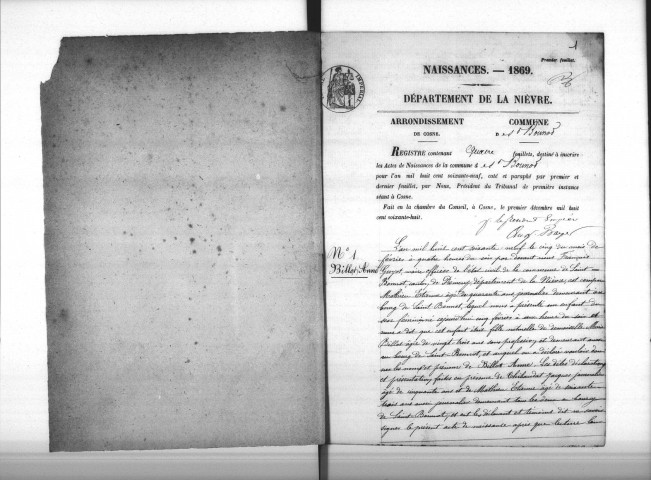 1
Premier feuillet.
NAISSANCES. — 1869.
DÉPARTEMENT DE LA NIÈVRE.
ARRONDISSEMENT
DE COSNE.
COMMUNE
D e St Bonnot
REGISTRE contenant feuillets, destiné à inscrire
les Actes de Naissances de la commune d e St Bonnot
pour l'an mil huit cent soixante-neuf, coté et paraphé par premier et
dernier feuillet, par Nous, Président du Tribunal de première instance
séant à Cosne.
Fait en la chambre du Conseil, à Cosne, le premier décembre mil huit
cent soixante-huit.
N° 1
Billot, Anne
L'an mil huit cent soixante neuf le cinq du mois de
février à quatre heures du soir par devant nous François
Guyot, maire officier de l'état civil de la commune de Saint
Bonnot, canton de Prémery, département de la Nièvre, est comparu
Mathieu Etienne âgé de quarante ans journalier demeurant au
bourg de Saint Bonnot, lequel nous a présenté un enfant du
sexe féminin cinq février à heure du soir et
nous a dit que cet enfant était fille naturelle de demoiselle Marie
Billot âgée de vingt trois ans sans profession et demeurant aussi
au bourg de Saint Bonnot, et auquel on a déclaré vouloir
les noms et prénoms de Billot Anne. Les dites déclaration
et présentation faites en présence de Jacques journalier
âgé de cinquante ans et de Mathieu Etienne âgé de soixante
trois ans aussi journalier demeurant tous les deux a bourg
de Saint Bonnot, et ont les déclarant et témoins dit ne savoir
signer le présent acte de naissance après que lecture leur